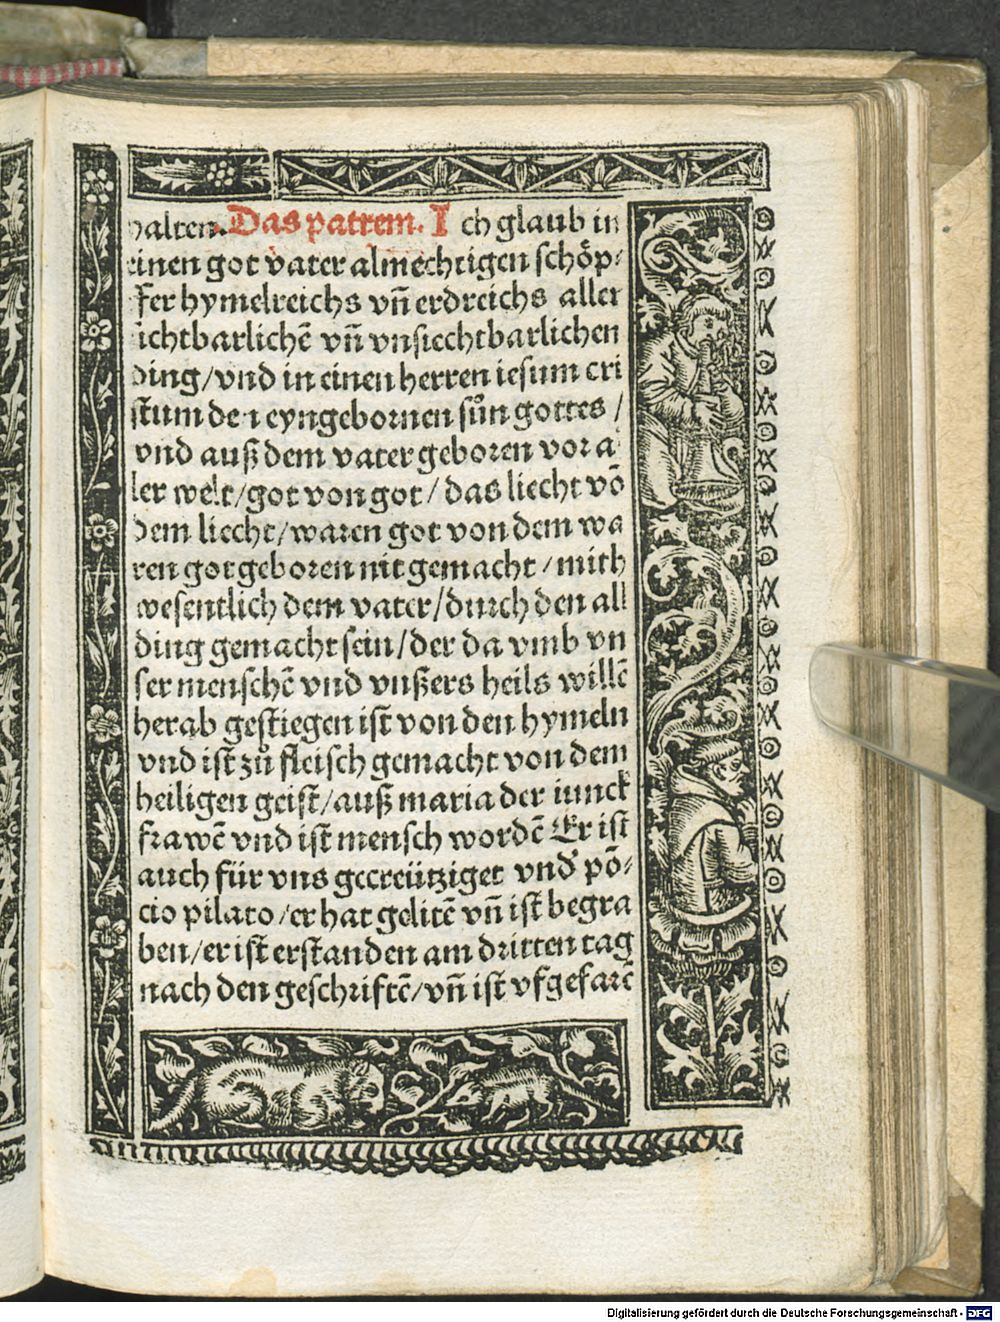 halten. Das patrem. Ich glaub in
einen got vater almechtigen schöp⸗
fer hymelreichs vñ erdreichs aller
sichtbarlichẽ vñ vnsiechtbarlichen
ding/vnd in einen herren iesum cri
stum den eyngebornen sůn gottes /
vnd auß dem vater geboren vor al
ler welt/got von got/das liecht võ
dem liecht/waren got von dem wa
ren got geboren nit gemacht/mith
wesentlich dem vater/durch den all
ding gemacht sein/der da vmb vn
ser menschẽ vnd vnßers heils willẽ
herab gestiegen ist von den hymeln
vnd ist zů fleisch gemacht von dem
heiligen geist/auß maria der iunck
frawẽ vnd ist mensch wordẽ Er ist
auch für vns gecreütziget vnd̕ põ⸗
cio pilato/er hat gelitẽ vñ ist begra
ben/er ist erstanden am dritten tag
nach den geschriftẽ/vñ ist vfgefarẽ
Digitalisierung gefördert durch die Deutsche Forschungsgemeinschaft - DFG